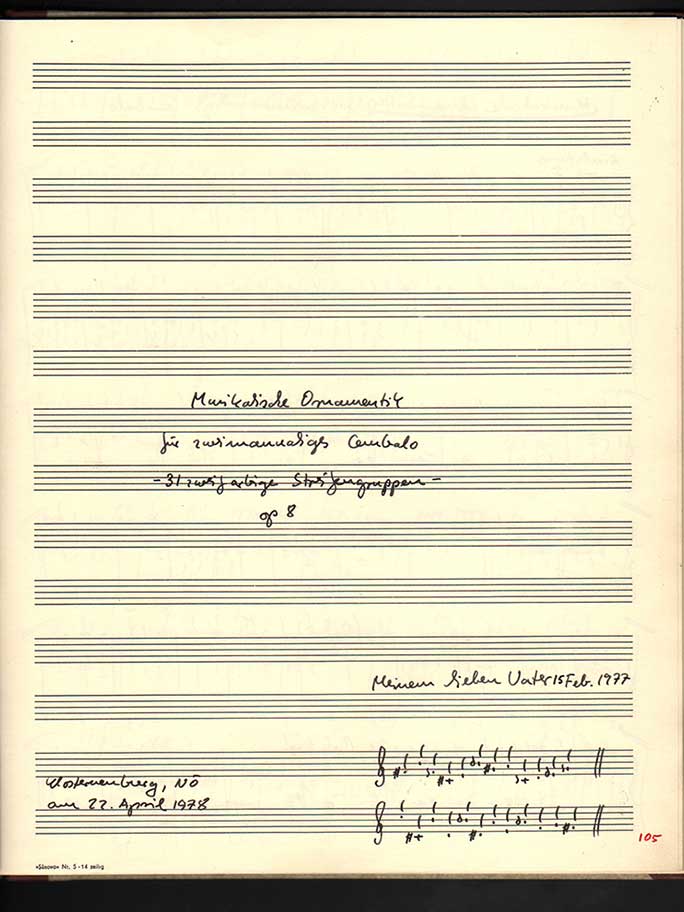 Musikalische Ornamentik
für zweimanualiges Cembalo
-31 zweifarbige Streifengruppen-
op 8
Meinem lieben Vater 15 Feb. 1977
Klosterneuburg, NÖ
am 22. April 1978
105
»Sünova« Nr. 5 - 14 zeilig